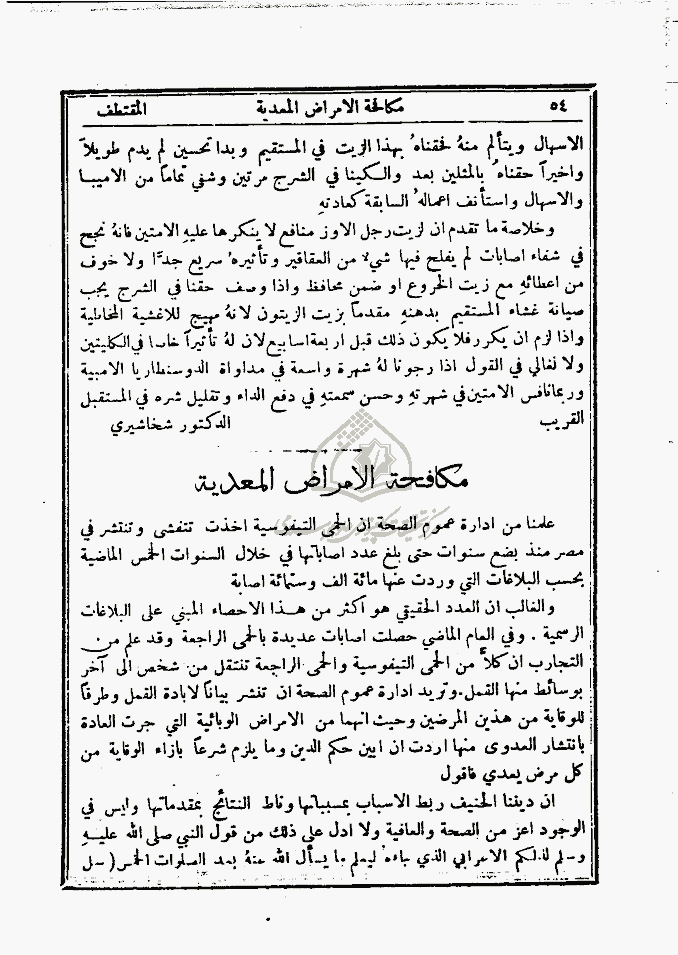 ٥٤ مكافحة الامراض المعدية المقتطف
الاسهال ويتألم منهُ فحقناهُ بهذا الزيت في المستقيم وبدا تحسين لم يدم طويلاً
واخيراً حقناهُ بالمثلين بعد والكينا في الشرج مرتين وشفي تماماً من الاميبا
والاسهال واستأنف اعمالهُ السابقة كعادتهِ
وخلاصة ما تقدم ان لزيت رجل الاوز منافع لا ينكرها عليهِ الامتين فانهُ نجح
في شفاء اصابات لم يفلح فيها شيء من العقاقير وتأثيرهُ سريع جدًّا ولا خوف
من اعطائهِ مع زيت الخروع او ضمن محافظ واذا وصف حقنا في الشرج يجب
صيانة غشاء المستقيم بدهنهِ مقدماً بزيت الزيتون لانهُ مهيج للاغشية المخاطية
واذا لزم ان يكرر فلا يكون ذلك قبل اربعة اسابيع لان لهُ تأثيراً خاصا في الكليتين
ولا نغالي في القول اذا رجونا لهُ شهرة واسعة في مداواة الدوسنطاريا الامبية
وربما نافس الامتين في شهرتهِ وحسن سمعتهِ في دفع الداء وتقليل شره في المستقبل
القريب الدكتور شخاشيري
مكافحة الامراض المعدية
علمنا من ادارة عموم الصحة ان الحمى التيفوسية اخذت تتفشى وتنتشر في
مصر منذ بضع سنوات حتى بلغ عدد اصاباتها في خلال السنوات الخمس الماضية
بحسب البلاغات التي وردت عنها مائة الف وستمائة اصابة
والغالب ان العدد الحقيقي هو أكثر من هذا الاحصاء المبني على البلاغات
الرسمية . وفي العام الماضي حصلت اصابات عديدة بالحمى الراجعة وقد علم من
التجارب ان كلاًّ من الحمى التيفوسية والحمى الراجعة تنتقل من شخص الى آخر
بوسائط منها القمل. وتريد ادارة عموم الصحة ان تنشر بياناً لابادة القمل وطرقاً
للوقاية من هذين المرضين وحيث انهما من الامراض الوبائية التي جرت العادة
بانتشار العدوى منها اردت ان ابين حكم الدين وما يلزم شرعاً بازاء الوقاية من
كل مرض يعدي فاقول
ان ديننا الحنيف ربط الاسباب بمسبباتها وناط النتائج بمقدماتها وليس في
الوجود اعز من الصحة والعافية ولا ادل على ذلك من قول النبي صلى الله عليهِ
وسلم لذلكم الاعرابي الذي جاءهُ ليعلم ما يسأل الله عنهُ بعد الصلوات الخمس (سل